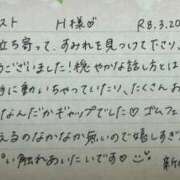 スト H様♡ R8.3.20
立ち寄って、すみれを見つけてたり、
うございました!穏やかな話し方とは
に動いちゃってたり、たくさんお
なんだかギャップでした♡ゴムフェ
えるのなかなか無いので嬉しすぎ
い触れあいたいです